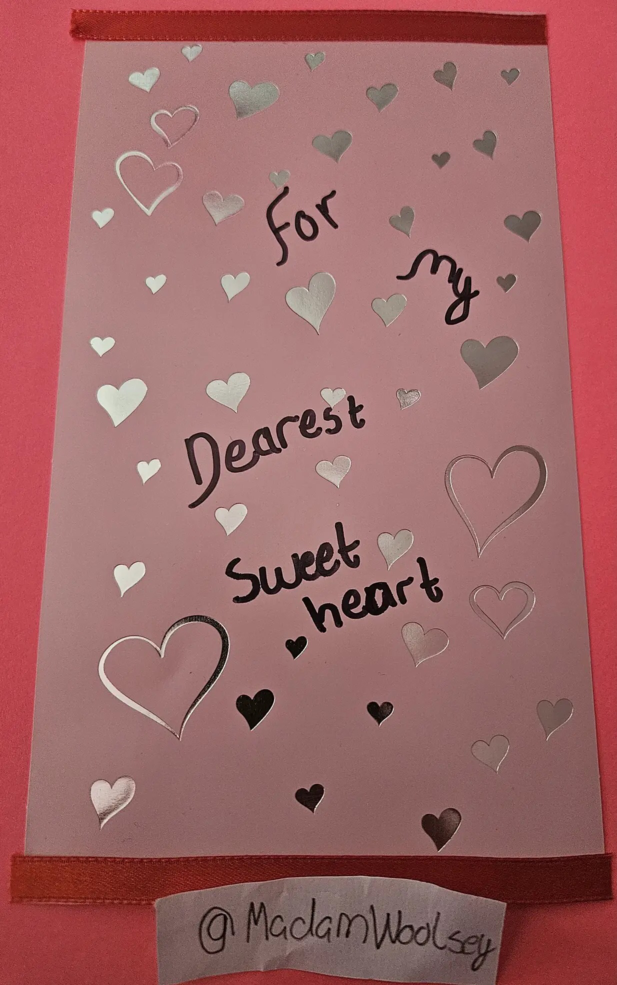 For
my
Dearest
Sweet
heart
@MadamWoolsey